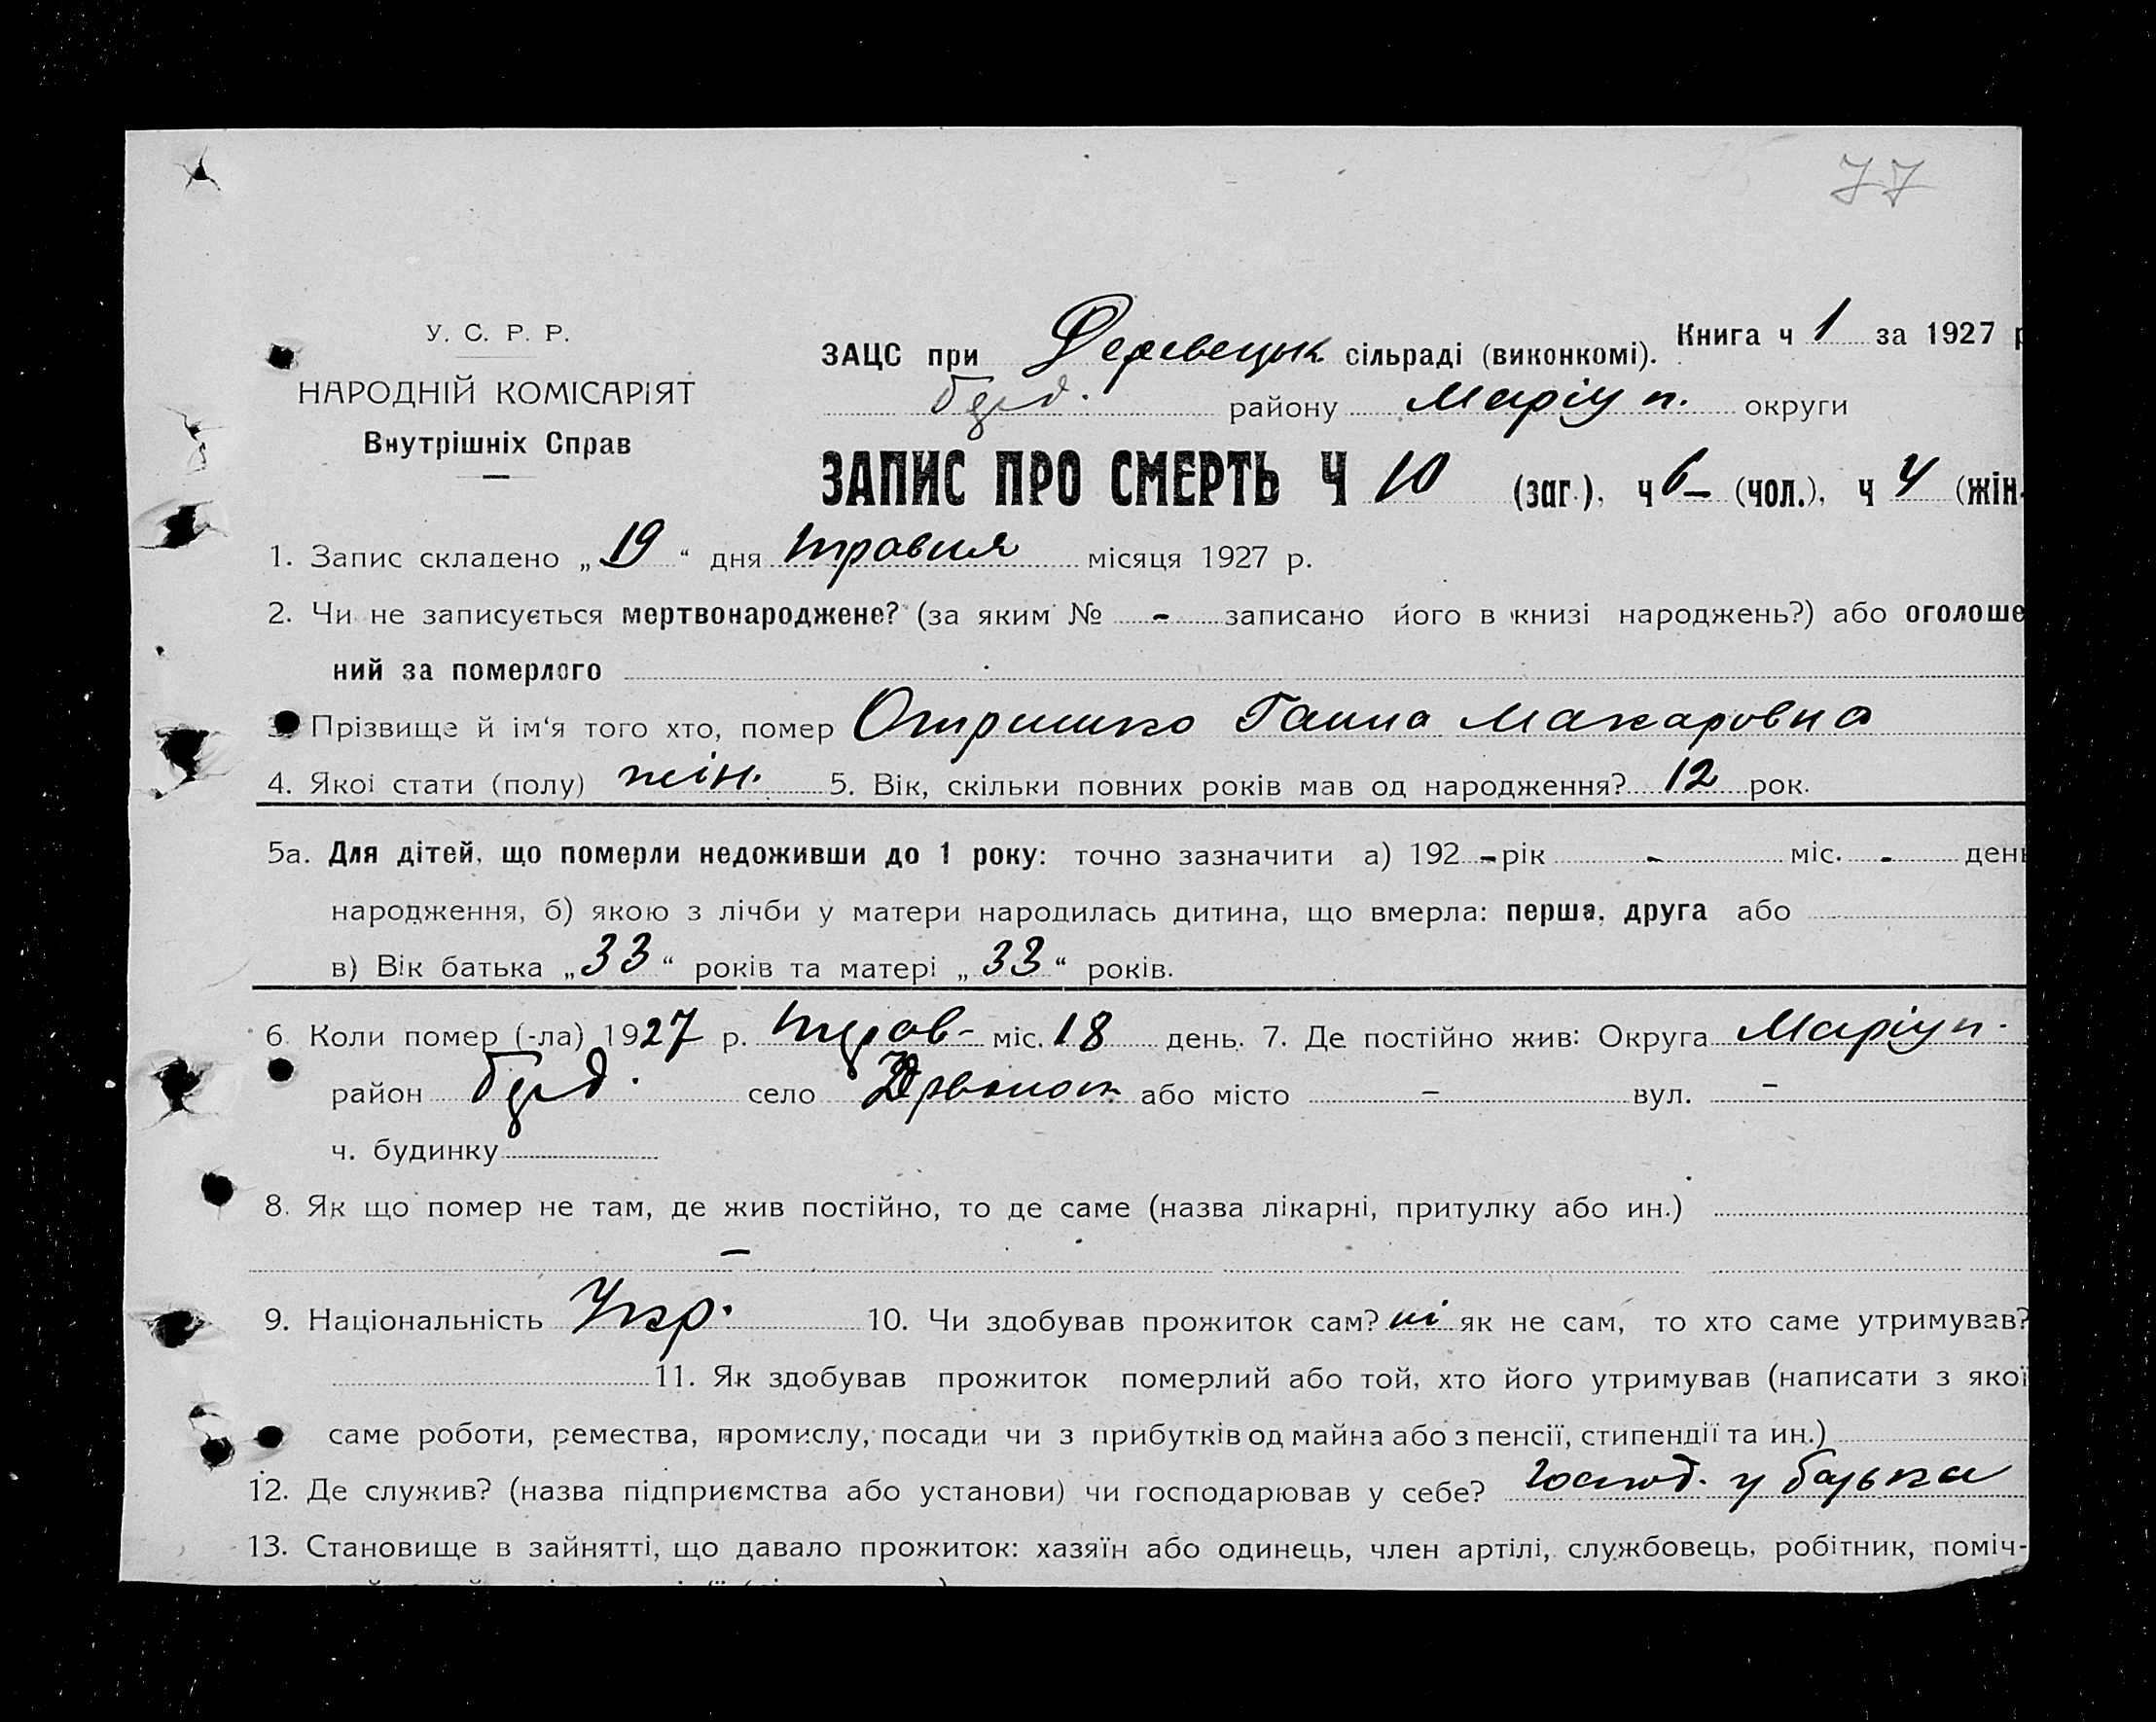 77
У. С. Р. Р.
НАРОДНІЙ КОМІСАРІЯТ
Внутрішніх Справ
Книга ч 1 за 1927 р
ЗАЦС при сільраді (виконкомі).
району Маріуп. округи
ЗАПИС ПРО СМЕРТЬ Ч 10 (заг.), ч 6 – (чол.), ч 4 (жін.
1. Запис складено „ 19 “ дня травня місяця 1927 р.
2. Чи не записується мертвонароджене? (за яким № - записано його в книзі народжень?) або оголоше
ний за померлого
3. Прізвище й ім‘я того хто, помер Отришко Ганна Макаровна
4. Якої стати (полу) жін. 5. Вік, скільки повних років мав од народження? 12 рок.
5а. Для дітей, що померли недоживши до 1 року: точно зазначити а) 192 - рік - міс. - день
народження, б) якою з лічби у матери народилась дитина, що вмерла: перша, друга або
в) Вік батька „ 33 “ років та матері „ 33 “ років.
6. Коли помер (-ла) 1927 р. трав- міс. 18 день. 7. Де постійно жив: Округа Маріуп.
район село або місто – вул. –
ч. будинку
8. Як що помер не там, де жив постійно, то де саме (назва лікарні, притулку або ин.)
–
9. Національність Укр. 10. Чи здобував прожиток сам? ні як не сам, то хто саме утримував?
11. Як здобував прожиток померлий або той, хто його утримував (написати з якої
саме роботи, ремества, промислу, посади чи з прибутків од майна або з пенсії, стипендії та ин.)
12. Де служив? (назва підприємства або установи) чи господарював у себе? господ. у батька
13. Становище в зайнятті, що давало прожиток: хазяїн або одинець, член артілі, службовець, робітник, поміч-